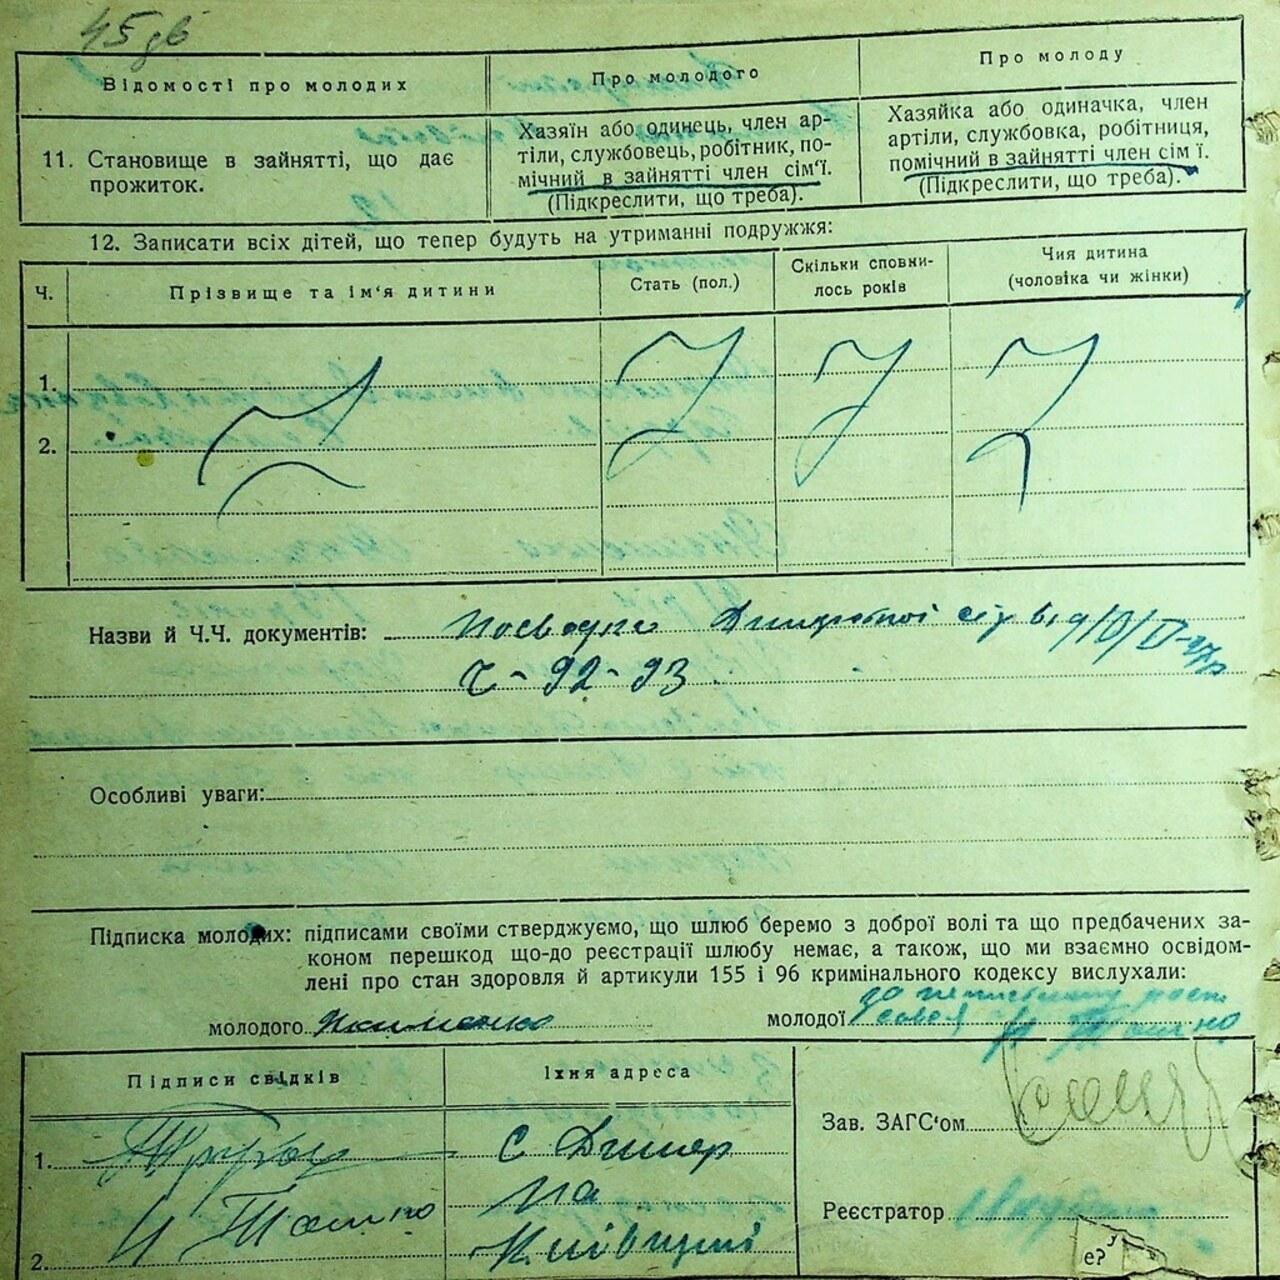 45 дв
Відомості про молодих
Про молодого
Про молоду
11. Становище в зайнятті, що дає
прожиток.
Хазяїн або одинець, член ар-
тіли, службовець, робітник, по-
мічний в зайнятті член сім'ї.
(Підкреслити, що треба).
Хазяйка або одиначка, член
артіли, службовка, робітниця,
помічний в зайнятті член сім ї.
(Підкреслити, що треба).
12. Записати всіх дітей, що тепер будуть на утриманні подружжя:
Ч.
Прізвище та ім'я дитини
Стать (пол.)
Скільки сповни-
лось років
Чия дитина
(чоловіка чи жінки)
1.
2.
Назви й Ч.Ч. документів: Посвідка
Ч - 92 - 93
Особливі уваги:
Підписка молодих: підписами своїми стверджуємо, що шлюб беремо з доброї волі та що предбачених за-
коном перешкод що-до реєстрації шлюбу немає, а також, що ми взаємно освідом-
лені про стан здоровля й артикули 155 і 96 кримінального кодексу вислухали:
молодого
молодої
Підписи свідків
Їхня адреса
1.
с Димер
на
Київщині
2.
Зав. ЗАГС'ом
Реєстратор
е?